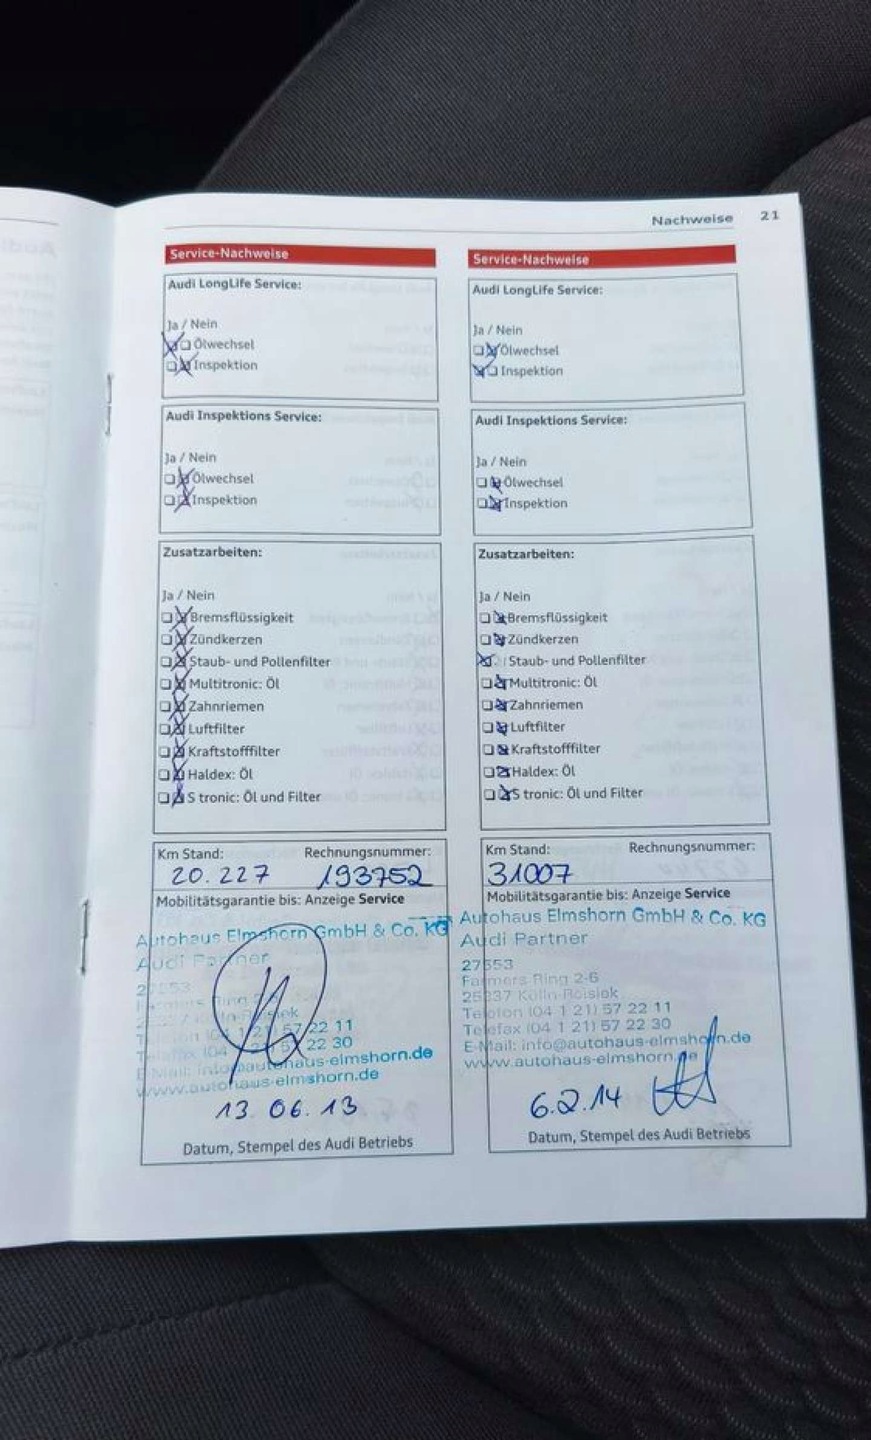 Nachweise 21
Service-Nachweise
Audi LongLife Service:
Ja / Nein
Ölwechsel
Inspektion
Audi Inspektions Service:
Ja / Nein
Ölwechsel
Inspektion
Zusatzarbeiten:
Ja / Nein
Bremsflüssigkeit
Zündkerzen
Staub- und Pollenfilter
Multitronic: Öl
Zahnriemen
Luftfilter
Kraftstofffilter
Haldex: Öl
S tronic: Öl und Filter
Km Stand: Rechnungsnummer:
20.227 193752
Mobilitätsgarantie bis: Anzeige Service
Autohaus Elmshorn GmbH & Co. KG
Audi Partner
27553
Farmers Ring 2-6
57 22 11
57 22 30
E-Mail: info@autohaus-elmshorn.de
www.autohaus-elmshorn.de
13.06.13
Datum, Stempel des Audi Betriebs
Service-Nachweise
Audi LongLife Service:
Ja / Nein
Ölwechsel
Inspektion
Audi Inspektions Service:
Ja / Nein
Ölwechsel
Inspektion
Zusatzarbeiten:
Ja / Nein
Bremsflüssigkeit
Zündkerzen
Staub- und Pollenfilter
Multitronic: Öl
Zahnriemen
Luftfilter
Kraftstofffilter
Haldex: Öl
S tronic: Öl und Filter
Km Stand: Rechnungsnummer:
31007
Mobilitätsgarantie bis: Anzeige Service
Autohaus Elmshorn GmbH & Co. KG
Audi Partner
27553
Farmers Ring 2-6
25337 Kölln-Reisiek
Telefon (04 1 21) 57 22 11
Telefax (04 1 21) 57 22 30
E-Mail: info@autohaus-elmshorn.de
www.autohaus-elmshorn.de
6.2.14
Datum, Stempel des Audi Betriebs